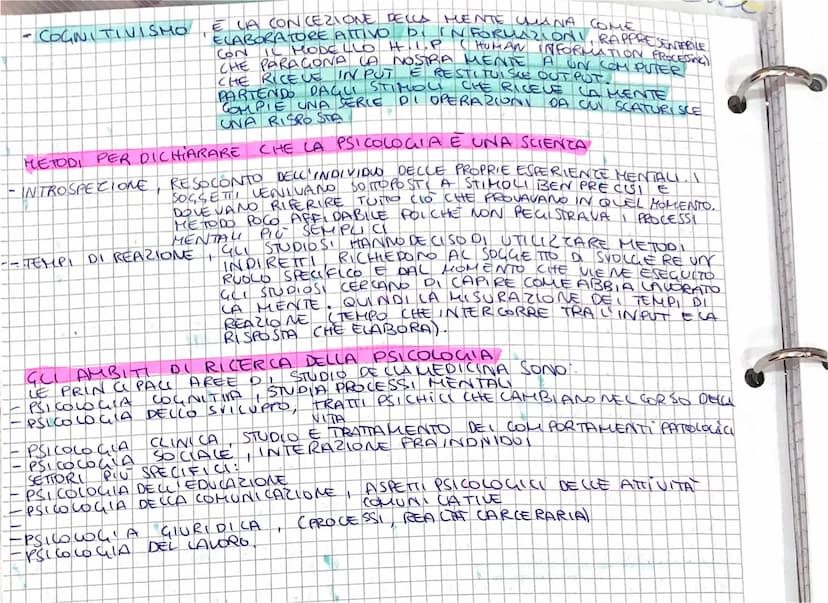 - COGNITIVISMO, È LA CONCEZIONE DELLA MENTE UMANA COME
ELABORATORE ATTIVO DI INFORMAZIONI, RAPPRESENTABILE
CON IL MODELLO H.I.P (HUMAN INFORMATION PROCESSING)
CHE PARAGONA LA NOSTRA MENTE A UN COMPUTER
CHE RICEVE INPUT E RESTITUISCE OUTPUT.
PARTENDO DAGLI STIMOLI CHE RICEVE LA MENTE
COMPIE UNA SERIE DI OPERAZIONI DA CUI SCATURISCE
UNA RISPOSTA
METODI PER DICHIARARE CHE LA PSICOLOGIA È UNA SCIENZA
- INTROSPEZIONE, RESOCONTO DELL'INDIVIDUO DELLE PROPRIE ESPERIENZE MENTALI. I
SOGGETTI VENIVANO SOTTOPOSTI A STIMOLI BEN PRECISI E
DOVEVANO RIFERIRE TUTTO CIÒ CHE PROVAVANO IN QUEL MOMENTO.
METODO POCO AFFIDABILE POICHÈ NON REGISTRAVA I PROCESSI
MENTALI PIÙ SEMPLICI
-- TEMPI DI REAZIONE, GLI STUDIOSI HANNO DECISO DI UTILIZZARE METODI
INDIRETTI, RICHIEDONO AL SOGGETTO DI SVOLGERE UN
RUOLO SPECIFICO E DAL MOMENTO CHE VIENE ESEGUITO
GLI STUDIOSI CERCANO DI CAPIRE COME ABBIA LAVORATO
LA MENTE. QUINDI LA MISURAZIONE DEI TEMPI DI
REAZIONE (TEMPO CHE INTERCORRE TRA L'INPUT E LA
RISPOSTA CHE ELABORA).
GLI AMBITI DI RICERCA DELLA PSICOLOGIA
LE PRINCIPALI AREE DI STUDIO DELLA MEDICINA SONO:
- PSICOLOGIA COGNITIVA, STUDIA PROCESSI MENTALI
- PSICOLOGIA DELLO SVILUPPO, TRATTI PSICHICI CHE CAMBIANO NEL CORSO DELLA
VITA
- PSICOLOGIA CLINICA, STUDIO E TRATTAMENTO DEI COMPORTAMENTI PATOLOGICI
- PSICOLOGIA SOCIALE, INTERAZIONE FRA INDIVIDUI
SETTORI PIÙ SPECIFICI:
- PSICOLOGIA DELL'EDUCAZIONE
- PSICOLOGIA DELLA COMUNICAZIONE, ASPETTI PSICOLOGICI DELLE ATTIVITÀ
COMUNICATIVE
- PSICOLOGIA GIURIDICA, (PROCESSI, REALTÀ CARCERARIA)
- PSICOLOGIA DEL LAVORO.